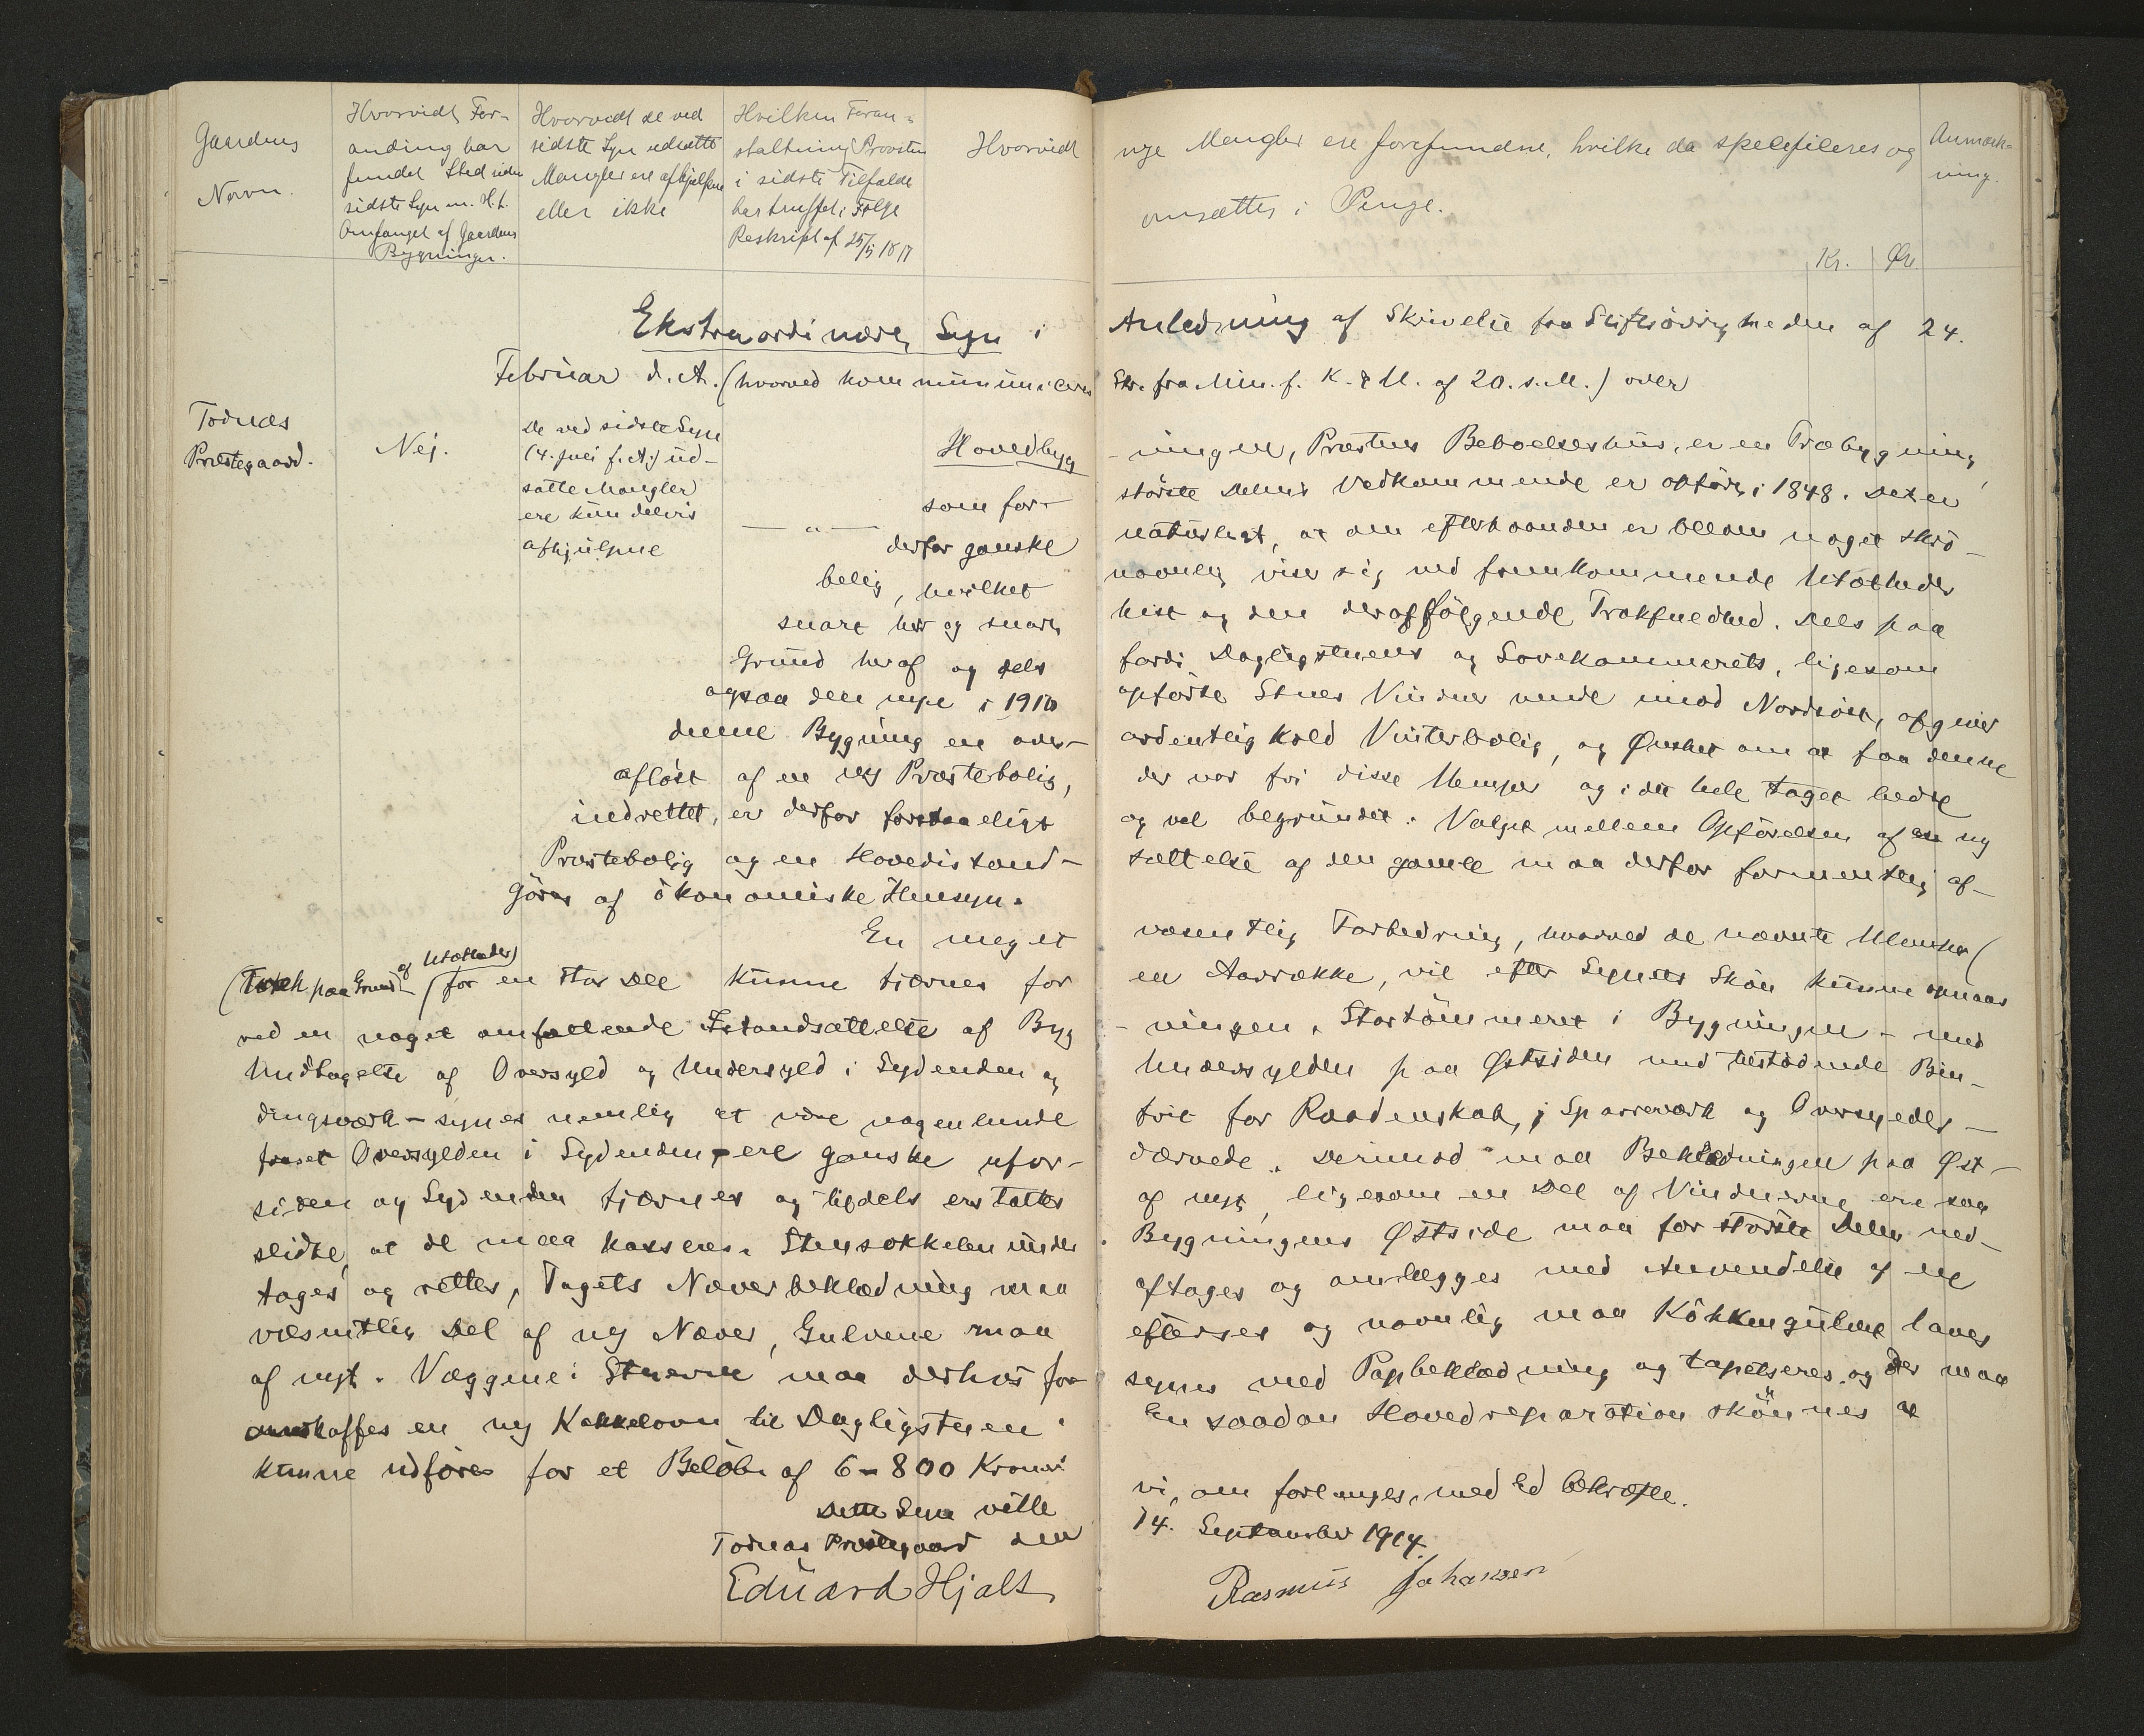 Gaardens Navn.
Hvorvidt Forandring har fundet Sted siden sidste Syn m. H. t. Omfanget af Gaardens Bygninger.
Hvorvidt de ved sidste Syn udsatte Mangler ere afhjulpne eller ikke
Hvilken Foranstaltning Provsten i sidste Tilfælde har truffet i Følge Reskript af 25/5 1817
Hvorvidt nye Mangler ere forefundne, hvilke da specificeres og
ansættes i Penge.
Kr. Øre
Anmærkning.
Ekstraordinært Syn i Anledning af Skrivelse fra Stiftsøvrigheden af 24.
Februar d. A. (hvorved kommuniceres Skr. fra Min. f. K. & U. af 20. s. M.) over
Todnæs
Præstegaard.
Nej.
De ved sidste Syn
(4. Juni f. A.) ud-
satte Mangler
ere kun delvis
afhjulpne
— " —
Hovedbyg -ningen, Præstens Beboelseshus, er en Træbygning,
som for største Delens Vedkommende er opført i 1848. Det er
derfor ganske naturligt, at den efterhaanden er bleven noget skrø-
belig, hvilket navnlig viser sig ved fremkommende Utætheder
snart her og snart hist og den deraf følgende Trækfuldhed. Dels paa
Grund heraf og dels fordi Dagligstuens og Sovekammerets, ligesom
ogsaa den nye i 1910 opførte Stues Vinduer vende mod Nordøst, afgiver
denne Bygning en over- ordentlig kold Vinterbolig, og Ønsket om at faa denne
afløst af en ny Præstebolig, der var fri disse Ulemper og i det hele taget bedre
indrettet, er derfor forstaaeligt og vel begrundet. Valget mellem Opførelsen af en ny
Præstebolig og en Hovedistand- sættelse af den gamle maa derfor formentlig af-
gøres af økonomiske Hensyn.
En meget væsentlig Forbedring, hvorved de nævnte Ulemper (
(Træk paa Grund af Utætheder) for en stor Del kunne fjernes for en Aarrække, vil efter Synets Skøn kunne opnaaes
ved en noget omfattende Istandsættelse af Byg -ningen. Stortømmeret i Bygningen - med
Undtagelse af Oversyld og Undersyld i Sydenden og Undersylden paa Østsiden med tilstødende Bin-
dingsværk - synes nemlig at være nogenlunde frit for Raadenskab, Sparreværk og
fraset Oversylden i Sydenden - ere ganske ufor- dærvede. Derimod maa Beklædningen paa Øst-
siden og Sydenden fjernes og tildels erstattes af nyt, ligesom en Del af Vinduerne ere saa
slidte, at de maa kasseres. Stensokkelen under Bygningens Østside maa for største Delen ned-
tages og rettes, Tagets Næverbeklædning maa aftages og omlægges med Anvendelse af en
væsentlig Del af ny Næver, Gulvene maa efterses og navnlig maa Køkkengulvet laves
af nyt. Væggene i Stuerne maa derhos for- synes med Papbeklædning og tapetseres, og der maa
anskaffes en ny Kakkelovn til Dagligstuen. En saadan Hovedreparation skønnes at
kunne udføres for et Beløb af 6-800 Kroner
Dette Syn ville vi, om forlanges, med Ed bekræfte.
Todnæs Præstegaard den 14. September 1914.
Eduard Hjalt Rasmus Johansen